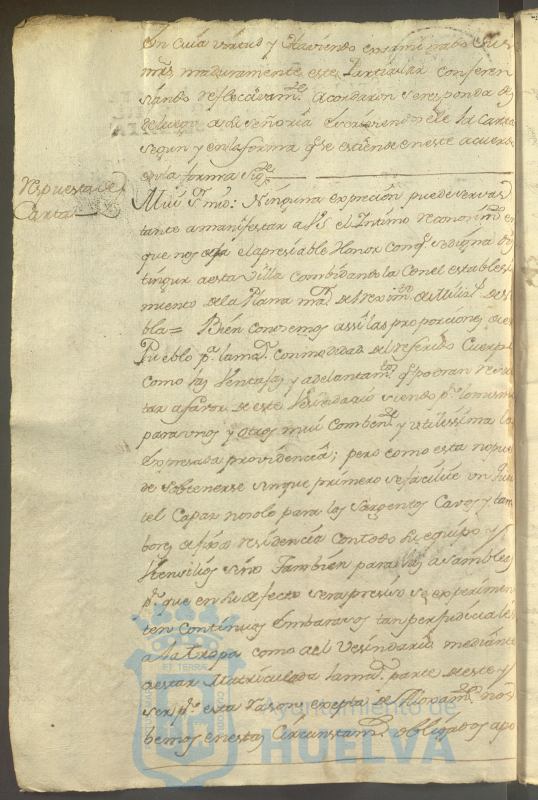 En cuia virtud y Haviendo examinado Sus
mrds. maduramente este Particular conferen
ciando reflexivamte. acordaron se responda
desde luego a su Señoria escriviendosele la Carta
segun y en la forma qe. se estiende en este acuerdo
en la forma sigte.
Respuesta de
Carta
Mui Sr. mio: Ninguna expreción puede ser vas
tante a manifestar a VS. el Intimo reconocimto. en
que nos deja el apresiable Honor con qe. se digna dis
tinguir a esta Villa combidandola con el estableci
miento de la Plana mar. del reximto. de Milicias de Se
bla = Bien conosemos assi las proporciones de este
Pueblo pa. la mar. conmodidad del referido Cuerpo
como las Ventajas y adelantamtos. qe. podran resul
tar a favor de este Vesindario siendo pr. lo mismo
para unos y otros mui combente. y utilissima la
expresada providencia; pero como esta no pue
de obtenerse sin que primero se facilite un Quar
tel Capaz no solo para los Sargentos Cavos y tam
bores de fixa residencia con todo su equipo y
Utensilios sino tambien para las asambleas
pr. que en su defecto sera presiso se experimen
ten continuos embarasos tan perjudiciales
a la tropa como al Vesindario mediante
a estar Matriculada la mar. parte de este y
ser pr. esta rason exempta de alojamtos. nos
bemos en estas circunstans. obligados a po
Ayuntamiento de
HUELVA